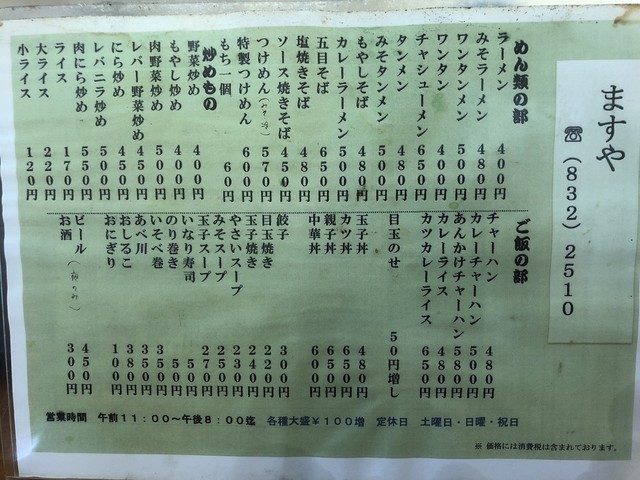 ますや
☎(832)2510
めん類の部
ラーメン 400円
みそラーメン 480円
ワンタンメン 500円
ワンタン 400円
チャシューメン 650円
タンメン 480円
みそタンメン 500円
もやしそば 480円
カレーラーメン 500円
五目そば 650円
塩焼きそば 480円
ソース焼きそば 450円
つけめん 570円
特製つけめん 600円
もち一個 60円
炒めもの
野菜炒め 400円
もやし炒め 400円
肉野菜炒め 500円
レバー野菜炒め 450円
にら炒め 400円
レバニラ炒め 500円
肉にら炒め 550円
ライス 170円
大ライス 220円
小ライス 120円
ご飯の部
チャーハン 480円
カレーチャーハン 500円
あんかけチャーハン 580円
カレーライス 480円
カツカレーライス 650円
目玉のせ 50円増し
玉子丼 480円
カツ丼 650円
親子丼 650円
中華丼 600円
餃子 300円
目玉焼き 220円
玉子焼き 220円
やさいスープ 230円
みそスープ 250円
玉子スープ 270円
いなり寿司 50円
のり巻き 50円
いそべ巻 350円
あべ川 350円
おしるこ 380円
おにぎり 100円
ビール 450円
お酒 (夜のみ) 300円
営業時間 午前11:00〜午後8:00迄 各種大盛¥100増 定休日 土曜日・日曜・祝日
※ 価格には消費税は含まれております。